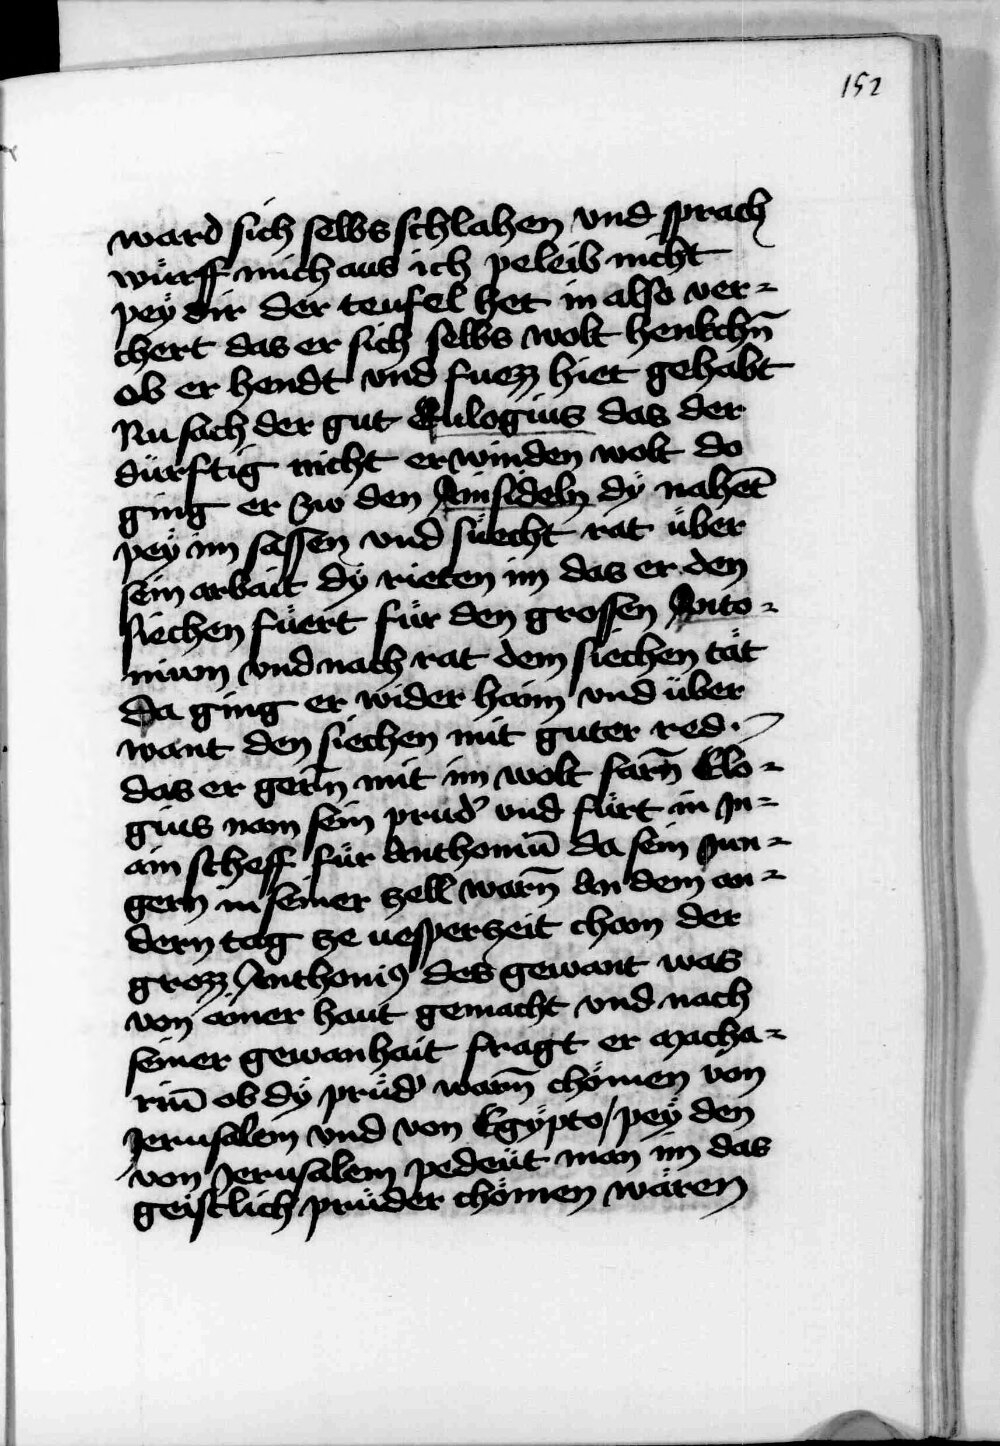 152
ward sich selbs schlahen vnd sprach
würff mich aus ich peleib nicht
peÿ dir der teufel het in also ver=
chert das er sich selbs wolt henkchn̄
ob er hendt vnd fuezz hiet gehabt
Nu sach der gut Eulogius das der
dürftig nicht erwinden wolt do
ging er zw den Ainsideln dÿ nahēt
peÿ im sassen vnd suecht rat über
sein arbait dÿ rieten im das er den
siechen fuert für den grossen Anto=
nium vnd nach rat dem siechen tät
Da ging er wider haim vnd über
want den siechen mit guter red.
das er gern̄ mit im wolt farn̄ Elo=
gius nam sein prud' vnd fürt in In=
ain scheff für Anthoniū da sein Jun=
gern in seiner zell warn̄ An dem an=
dern tag ze uesperzeit cham der
grozz Anthoni9 des gewant was
von ainer haut gemacht vnd nach
seiner gewanhait fragt er Macha=
riū ob dÿ prüd' warn̄ chömen von
Jerusalem vnd von Egÿpto/peÿ den
von Jerusalem pedeüt man im das
geistlich prüder chömen wären